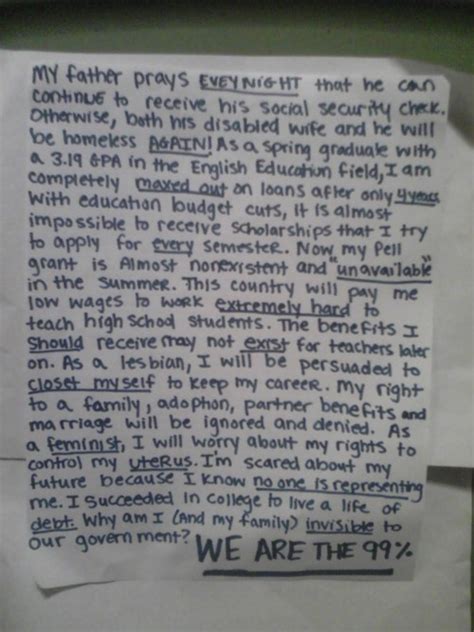 My father prays EVEYNIGHT that he can
continue to receive his social security check.
Otherwise, both his disabled wife and he will
be homeless AGAIN! As a spring graduate with
a 3.19 GPA in the English Education field, I am
completely maxed out on loans after only 4 years
With education budget cuts, it is almost
impossible to receive scholarships that I try
to apply for every semester. Now my Pell
grant is Almost nonexistent and "unavailable"
in the summer. This country will pay me
low wages to work extremely hard to
teach high school students. The benefits I
should receive may not exist for teachers later
on. As a lesbian, I will be persuaded to
closet myself to keep my career. My right
to a family, adoption, partner benefits and
marriage will be ignored and denied. As
a feminist, I will worry about my rights to
control my uterus. I'm scared about my
future because I know no one is representing
me. I succeeded in college to live a life of
debt. Why am I (And my family) invisible to
our government? WE ARE THE 99%